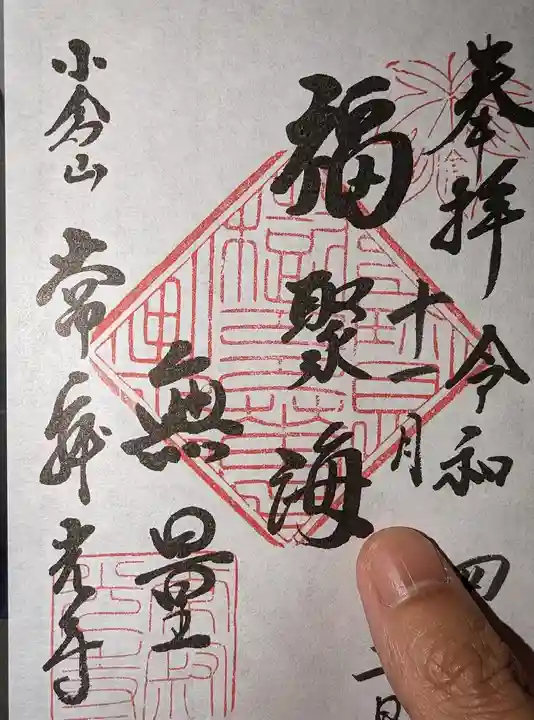 奉拝
令和四
十一月
二日
福聚海
無量
小倉山
常寂光寺